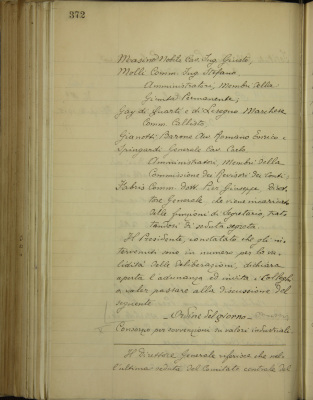 372
Nobile Cav. Ing. Giusto,
Molli Comm. Ing. Stefano
Amministratori, Membri della
Giunta Permanente;
Gay di Quarti e di Lesegno Marchese
Comm. Callisto
Gianotti Barone Cav. Romano Enrico e
Spingardi Generale Cav. Carlo
Amministratori, Membri della
Commissione dei Revisori dei Conti;
Fabris Comm. Dott. Pier Giuseppe Diret-
tore Generale che viene incaricato
delle funzioni di Segretario, trat-
tandosi di seduta segreta.
Il Presidente, constatato che gli in-
tervenuti sono in numero per la va-
lidità delle deliberazioni, dichiara
aperta l'adunanza ed invita i Colleghi
a voler passare alla discussione del
seguente
Ordine del giorno
Consorzio per sovvenzioni su valori industriali
Il Direttore Generale riferisce che nel-
l'ultima seduta del Comitato centrale del